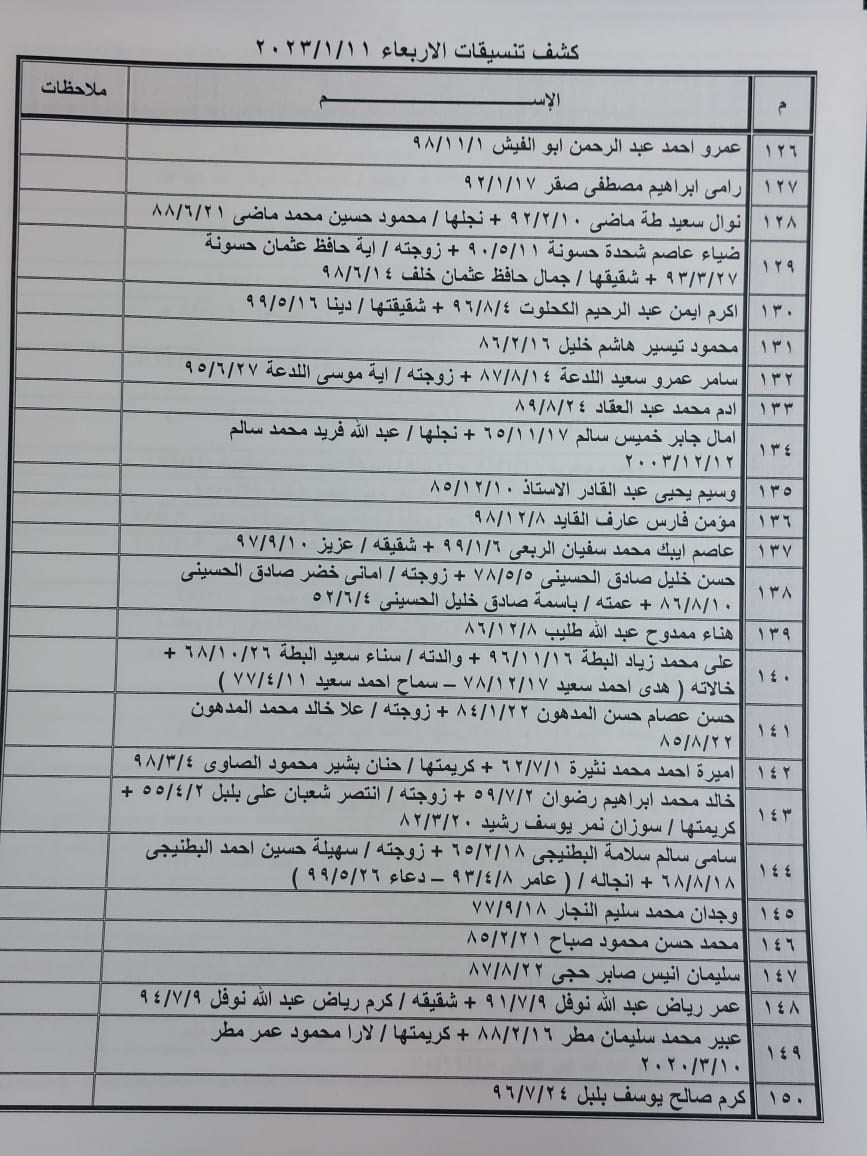 كشف تنسيقات الاربعاء ٢٠٢٣/١/١١
م الإســـــم ملاحظات
١٢٦ عمرو احمد عبد الرحمن ابو الفيش ٩٨/١١/١
١٢٧ رامى ابراهيم مصطفى صقر ٩٢/١/١٧
١٢٨ نوال سعيد طة ماضى ٩٢/٢/١٠ + نجلها / محمود حسين محمد ماضى ٨٨/٦/٢١
١٢٩ ضياء عاصم شحدة حسونة ٩٠/٥/١١ + زوجته / اية حافظ عثمان حسونة
٩٣/٣/٢٧ + شقيقها / جمال حافظ عثمان خلف ٩٨/٦/١٤
١٣٠ اكرم ايمن عبد الرحيم الكحلوت ٩٦/٨/٤ + شقيقتها / دينا ٩٩/٥/١٦
١٣١ محمود تيسير هاشم خليل ٨٦/٢/١٦
١٣٢ سامر عمرو سعيد اللدعة ٨٧/٨/١٤ + زوجته / اية موسى اللدعة ٩٥/٦/٢٧
١٣٣ ادم محمد عبد العقاد ٨٩/٨/٢٤
١٣٤ امال جابر خميس سالم ٦٥/١١/١٧ + نجلها / عبد الله فريد محمد سالم
٢٠٠٣/١٢/١٢
١٣٥ وسيم يحيى عبد القادر الاستاذ ٨٥/١٢/١٠
١٣٦ مؤمن فارس عارف القايد ٩٨/١٢/٨
١٣٧ عاصم ايبك محمد سفيان الربعى ٩٩/١/٦ + شقيقه / عزيز ٩٧/٩/١٠
١٣٨ حسن خليل صادق الحسينى ٧٨/٥/٥ + زوجته / امانى خضر صادق الحسينى
٨٦/٨/١٠ + عمته / باسمة صادق خليل الحسينى ٥٢/٦/٤
١٣٩ هناء ممدوح عبد الله طليب ٨٦/١٢/٨
١٤٠ على محمد زياد البطة ٩٦/١١/١٦ + والدته / سناء سعيد البطة ٦٨/١٠/٢٦ +
خالاته ( هدى احمد سعيد ٧٨/١٢/١٧ – سماح احمد سعيد ٧٧/٤/١١ )
١٤١ حسن عصام حسن المدهون ٨٤/١/٢٢ + زوجته / علا خالد محمد المدهون
٨٥/٨/٢٢
١٤٢ اميرة احمد محمد نثيرة ٦٢/٧/١ + كريمتها / حنان بشير محمود الصاوى ٩٨/٣/٤
١٤٣ خالد محمد ابراهيم رضوان ٥٩/٧/٢ + زوجته / انتصر شعبان على بلبل ٥٥/٤/٢ +
كريمتها / سوزان نمر يوسف رشيد ٨٢/٣/٢٠
١٤٤ سامى سالم سلامة البطنيجى ٦٥/٢/١٨ + زوجته / سهيلة حسين احمد البطنيجى
٦٨/٨/١٨ + انجاله / ( عامر ٩٣/٤/٨ – دعاء ٩٩/٥/٢٦ )
١٤٥ وجدان محمد سليم النجار ٧٧/٩/١٨
١٤٦ محمد حسن محمود صباح ٨٥/٢/٢١
١٤٧ سليمان انيس صابر حجى ٨٧/٨/٢٢
١٤٨ عمر رياض عبد الله نوفل ٩١/٧/٩ + شقيقه / كرم رياض عبد الله نوفل ٩٤/٧/٩
١٤٩ عبير محمد سليمان مطر ٨٨/٢/١٦ + كريمتها / لارا محمود عمر مطر
٢٠٢٠/٣/١٠
١٥٠ كرم صالح يوسف بلبل ٩٦/٧/٢٤